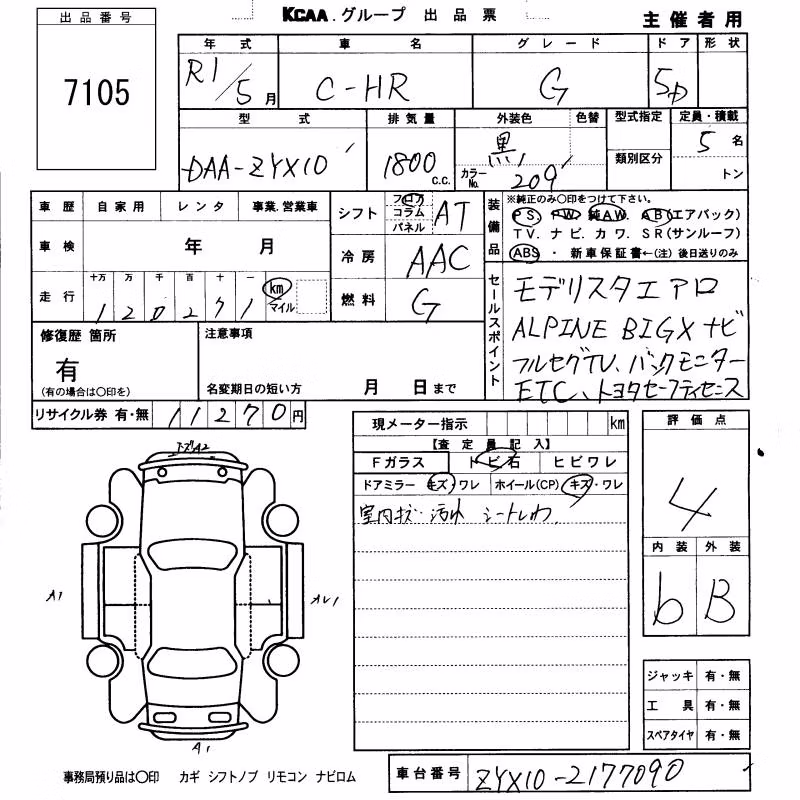 出品番号
7105
KCAA.グループ 出品票
主催者用
年式 車名 グレード ドア 形状
R1/5月 C-HR G 5D
型式 排気量 外装色 色替 型式指定 定員・積載
DAA-ZYX10 1800c.c. 黒 カラーNo. 209 類別区分 5名 トン
車歴 自家用 レンタ 事業.営業車
車検 年 月
走行 十万 万 千 百 十 一
120271 km マイル
シフト フロア コラム パネル AT
冷房 AAC
燃料 G
装備品 ※純正のみ〇印をつけて下さい。
PS. PW. 純AW. AB(エアバック)
TV. ナビ. カワ. SR(サンルーフ)
ABS・新車保証書←(注)後日送りのみ
セールスポイント
モデリスタエアロ
ALPINE BIGX ナビ
フルセグTV、バックモニター
ETC、トヨタセーフティセンス
修復歴 箇所
有
(有の場合は〇印を)
注意事項
名変期日の短い方 月 日まで
リサイクル券 有・無 11270円
現メーター指示 km
【査定員記入】
Fガラス トビ石 ヒビワレ
ドアミラー キズ・ワレ ホイール(CP) キズ・ワレ
室内キズ・汚れ シートしわ
評価点
4
内装 外装
b B
A1
A1
ジャッキ 有・無
工具 有・無
スペアタイヤ 有・無
事務局預り品は〇印 カギ シフトノブ リモコン ナビロム
車台番号 ZYX10-2177090